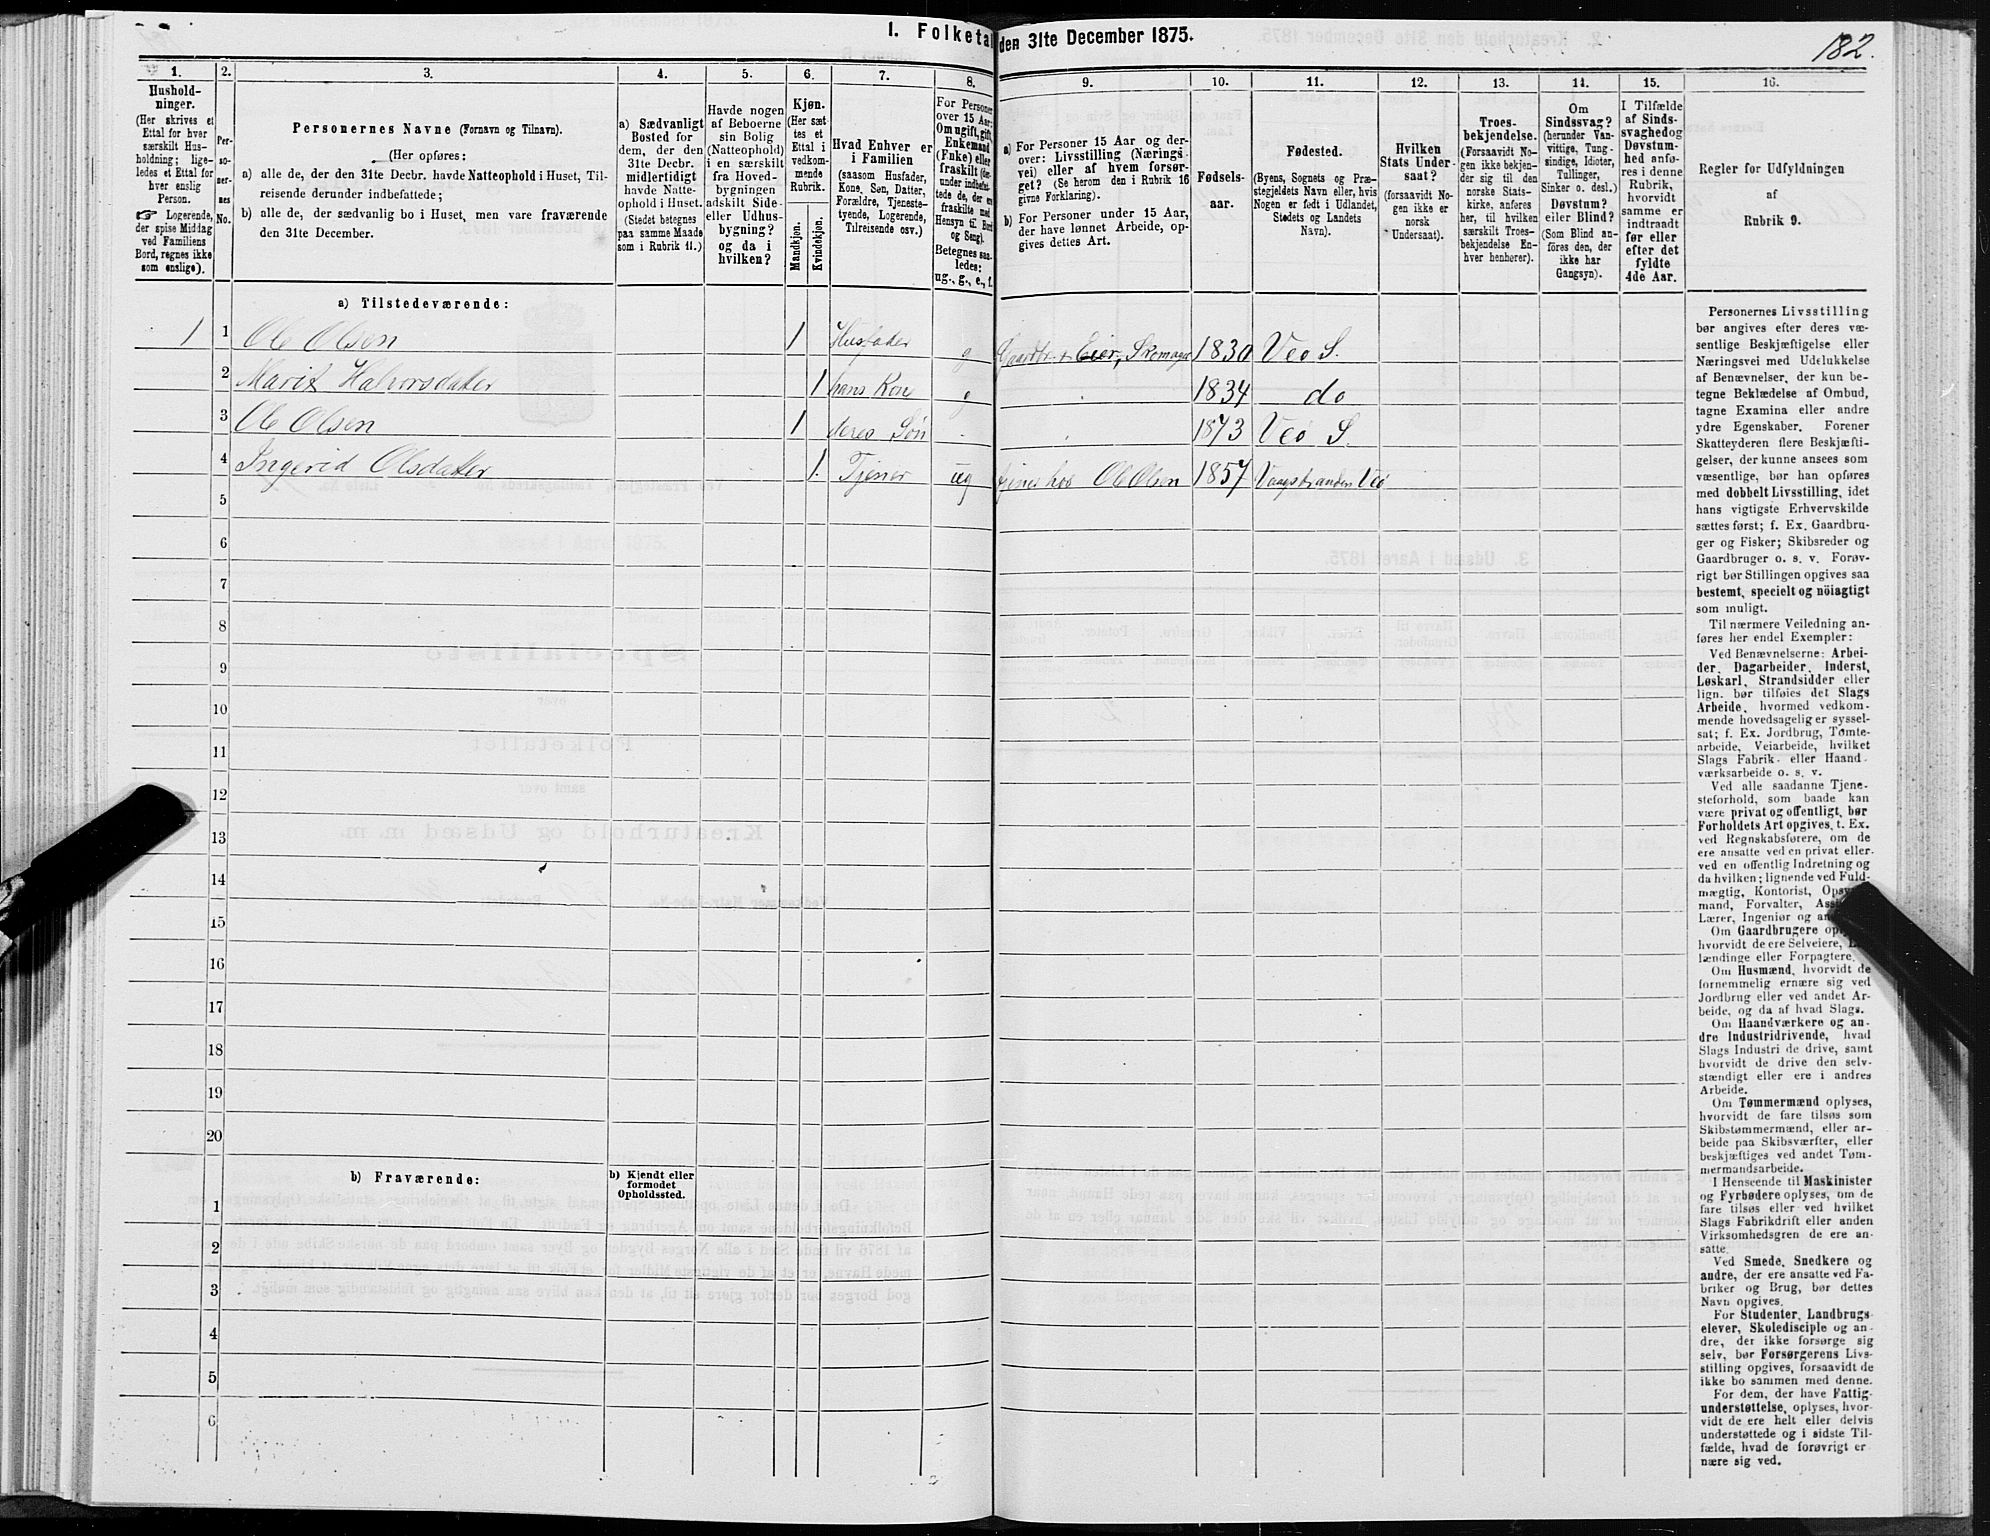 1. Folketal den 31te December 1875.
182.
1. 2. 3. 4. 5. 6. 7. 8. 9. 10. 11. 12. 13. 14. 15. 16.
Hushold-
ninger.
(Her skrives et
Ettal for hver
særskilt Hus-
holdning; lige-
ledes et Ettal for
hver enslig
Person.
☞ Logerende,
der spise Middag
ved Familiens
Bord, regnes ikke
som enslige).
Per-
so-
ner-
nes
No.
Personernes Navne (Fornavn og Tilnavn).
(Her opføres:
a) alle de, der den 31te Decbr. havde Natteophold i Huset, Til-
reisende derunder indbefattede;
b) alle de, der sædvanlig bo i Huset, men vare fraværende
den 31te December.
a) Sædvanligt
Bosted for
dem, der den
31te Decbr.
midlertidigt
havde Natte-
ophold i Huset.
(Stedet betegnes
paa samme Maade
som i Rubrik 11.)
Havde nogen
af Beboerne
sin Bolig
(Natteophold)
i en særskilt
fra Hoved-
bygningen
adskilt Side-
eller Udhus-
bygning?
og da i
hvilken?
Kjøn.
(Her sæt-
tes et
Ettal i
vedkom-
mende
Rubrik.
Mandkjøn.
Kvindekjøn.
Hvad Enhver er
i Familien
(saasom Husfader,
Kone, Søn, Datter,
Forældre, Tjeneste-
tyende, Logerende,
Tilreisende osv.)
For Personer
over 15 Aar:
Om ugift, gift,
Enkemand
(Enke) eller
fraskilt (der-
under indbefat-
tede de, der ere
fraskilte med
Hensyn til Bord
og Seng).
Betegnes saa-
ledes:
ug., g., e., f.
a) For Personer 15 Aar og der-
over: Livsstilling (Nærings-
vei) eller af hvem forsør-
get? (Se herom den i Rubrik 16
givne Forklaring).
b) For Personer under 15 Aar,
der have lønnet Arbeide, op-
gives dettes Art.
Fødsels-
aar.
Fødested.
(Byens, Sognets og Præ-
stegjeldets Navn eller, hvis
Nogen er født i Udlandet,
Stedets og Landets
Navn).
Hvilken
Stats Under-
saat?
(forsaavidt No-
gen ikke er
norsk
Undersaat).
Troes-
bekjendelse.
(Forsaavidt No-
gen ikke bekjen-
der sig til den
norske Stats-
kirke, anføres
her, til hvilken
særskilt Troes-
bekjendelse En-
hver henhører).
Om
Sindssvag?
(herunder Van-
vittige, Tung-
sindige, Idioter,
Tullinger,
Sinker o. desl.)
Døvstum?
eller Blind?
(Som Blind an-
føres den, der
ikke har
Gangsyn).
I Tilfælde
af Sinds-
svaghed og
Døvstum-
hed anfø-
res i denne
Rubrik,
hvorvidt
samme er
indtraadt
før eller
efter det
fyldte
4de Aar.
Regler for Udfyldningen
af
Rubrik 9.
a) Tilstedeværende:
1 1 Ole Olsen 1 Husfader g Gaardbr. + Eier, Skomager 1830 Veø S.
2 Marit Halvorsdatter 1 hans Kone g 1834 do
3 Ole Olsen 1 deres Søn 1873 Veø S.
4 Ingerid Olsdatter 1. Tjener ug tjener hos Ole Olsen 1857 Vaagstranden Veø
5
6
7
8
9
10
11
12
13
14
15
16
17
18
19
20
b) Fraværende:
b) Kjendt eller
formodet
Opholdssted.
1
2
3
4
5
6
Personernes Livsstilling
bør angives efter deres væ-
sentlige Beskjæftigelse eller
Næringsvei med Udelukkelse
af Benævnelser, der kun be-
tegne Beklædelse af Ombud,
tagne Examina eller andre
ydre Egenskaber. Forener
Skatteyderen flere Beskjæfti-
gelser, der kunne ansees som
væsentlige, bør han opføres
med dobbelt Livsstilling, idet
hans vigtigste Erhvervskilde
sættes først; f. Ex. Gaardbru-
ger og Fisker; Skibsreder og
Gaardbruger o. s. v. Forøv-
rigt bør Stillingen opgives saa
bestemt, specielt og nöiagtigt
som muligt.
Til nærmere Veiledning an-
føres her endel Exempler:
Ved Benævnelserne: Arbei-
der, Dagarbeider, Inderst,
Løskarl, Strandsidder eller
lign. bør tilføies det Slags
Arbeide, hvormed vedkom-
mende hovedsagelig er syssel-
sat; f. Ex. Jordbrug, Tømte-
arbeide, Veiarbeide, hvilket
Slags Fabrik- eller Haand-
værksarbeide o. s. v.
Ved alle saadanne Tjene-
steforhold, som baade kan
være privat og offentligt, bør
Forholdets Art opgives, t. Ex.
ved Regnskabsførere, om de
ere ansatte ved en privat eller
ved en offentlig Indretning og
da hvilken; lignende ved Fuld-
mægtig, Kontorist,
mand, Forvalter,
Lærer, Ingeniør og
Om Gaardbrugere
hvorvidt de ere Selveiere,
lændinge eller Forpagtere.
Om Husmænd, hvorvidt de
fornemmelig ernære sig ved
Jordbrug eller ved andet Ar-
beide, og da af hvad Slags.
Om Haandværkere og an-
dre Industridrivende, hvad
Slags Industri de drive, samt
hvorvidt de drive den selv-
stændigt eller ere i andres
Arbeide.
Om Tømmermænd oplyses,
hvorvidt de fare tilsøs som
Skibstømmermænd, eller ar-
beide paa Skibsværfter, eller
beskjæftiges ved andet Tøm-
mermandsarbeide.
I Henseende til Maskinister
og Fyrbødere oplyses, om de
fare tilsøs eller ved hvilket
Slags Fabrikdrift eller anden
Virksomhedsgren de ere an-
satte.
Ved Smede, Snedkere og
andre, der ere ansatte ved Fa-
briker og Brug, bør dettes
Navn opgives.
For Studenter, Landbrugs-
elever, Skoledisciple og an-
dre, der ikke forsørge sig
selv, bør Forsørgerens Livs-
stilling opgives, forsaavidt de
ikke bo sammen med denne.
For dem, der have Fattig-
understøttelse, oplyses, hvor-
vidt de ere helt eller delvis
understøttede og i sidste Til-
fælde, hvad de forøvrigt er-
nære sig ved.